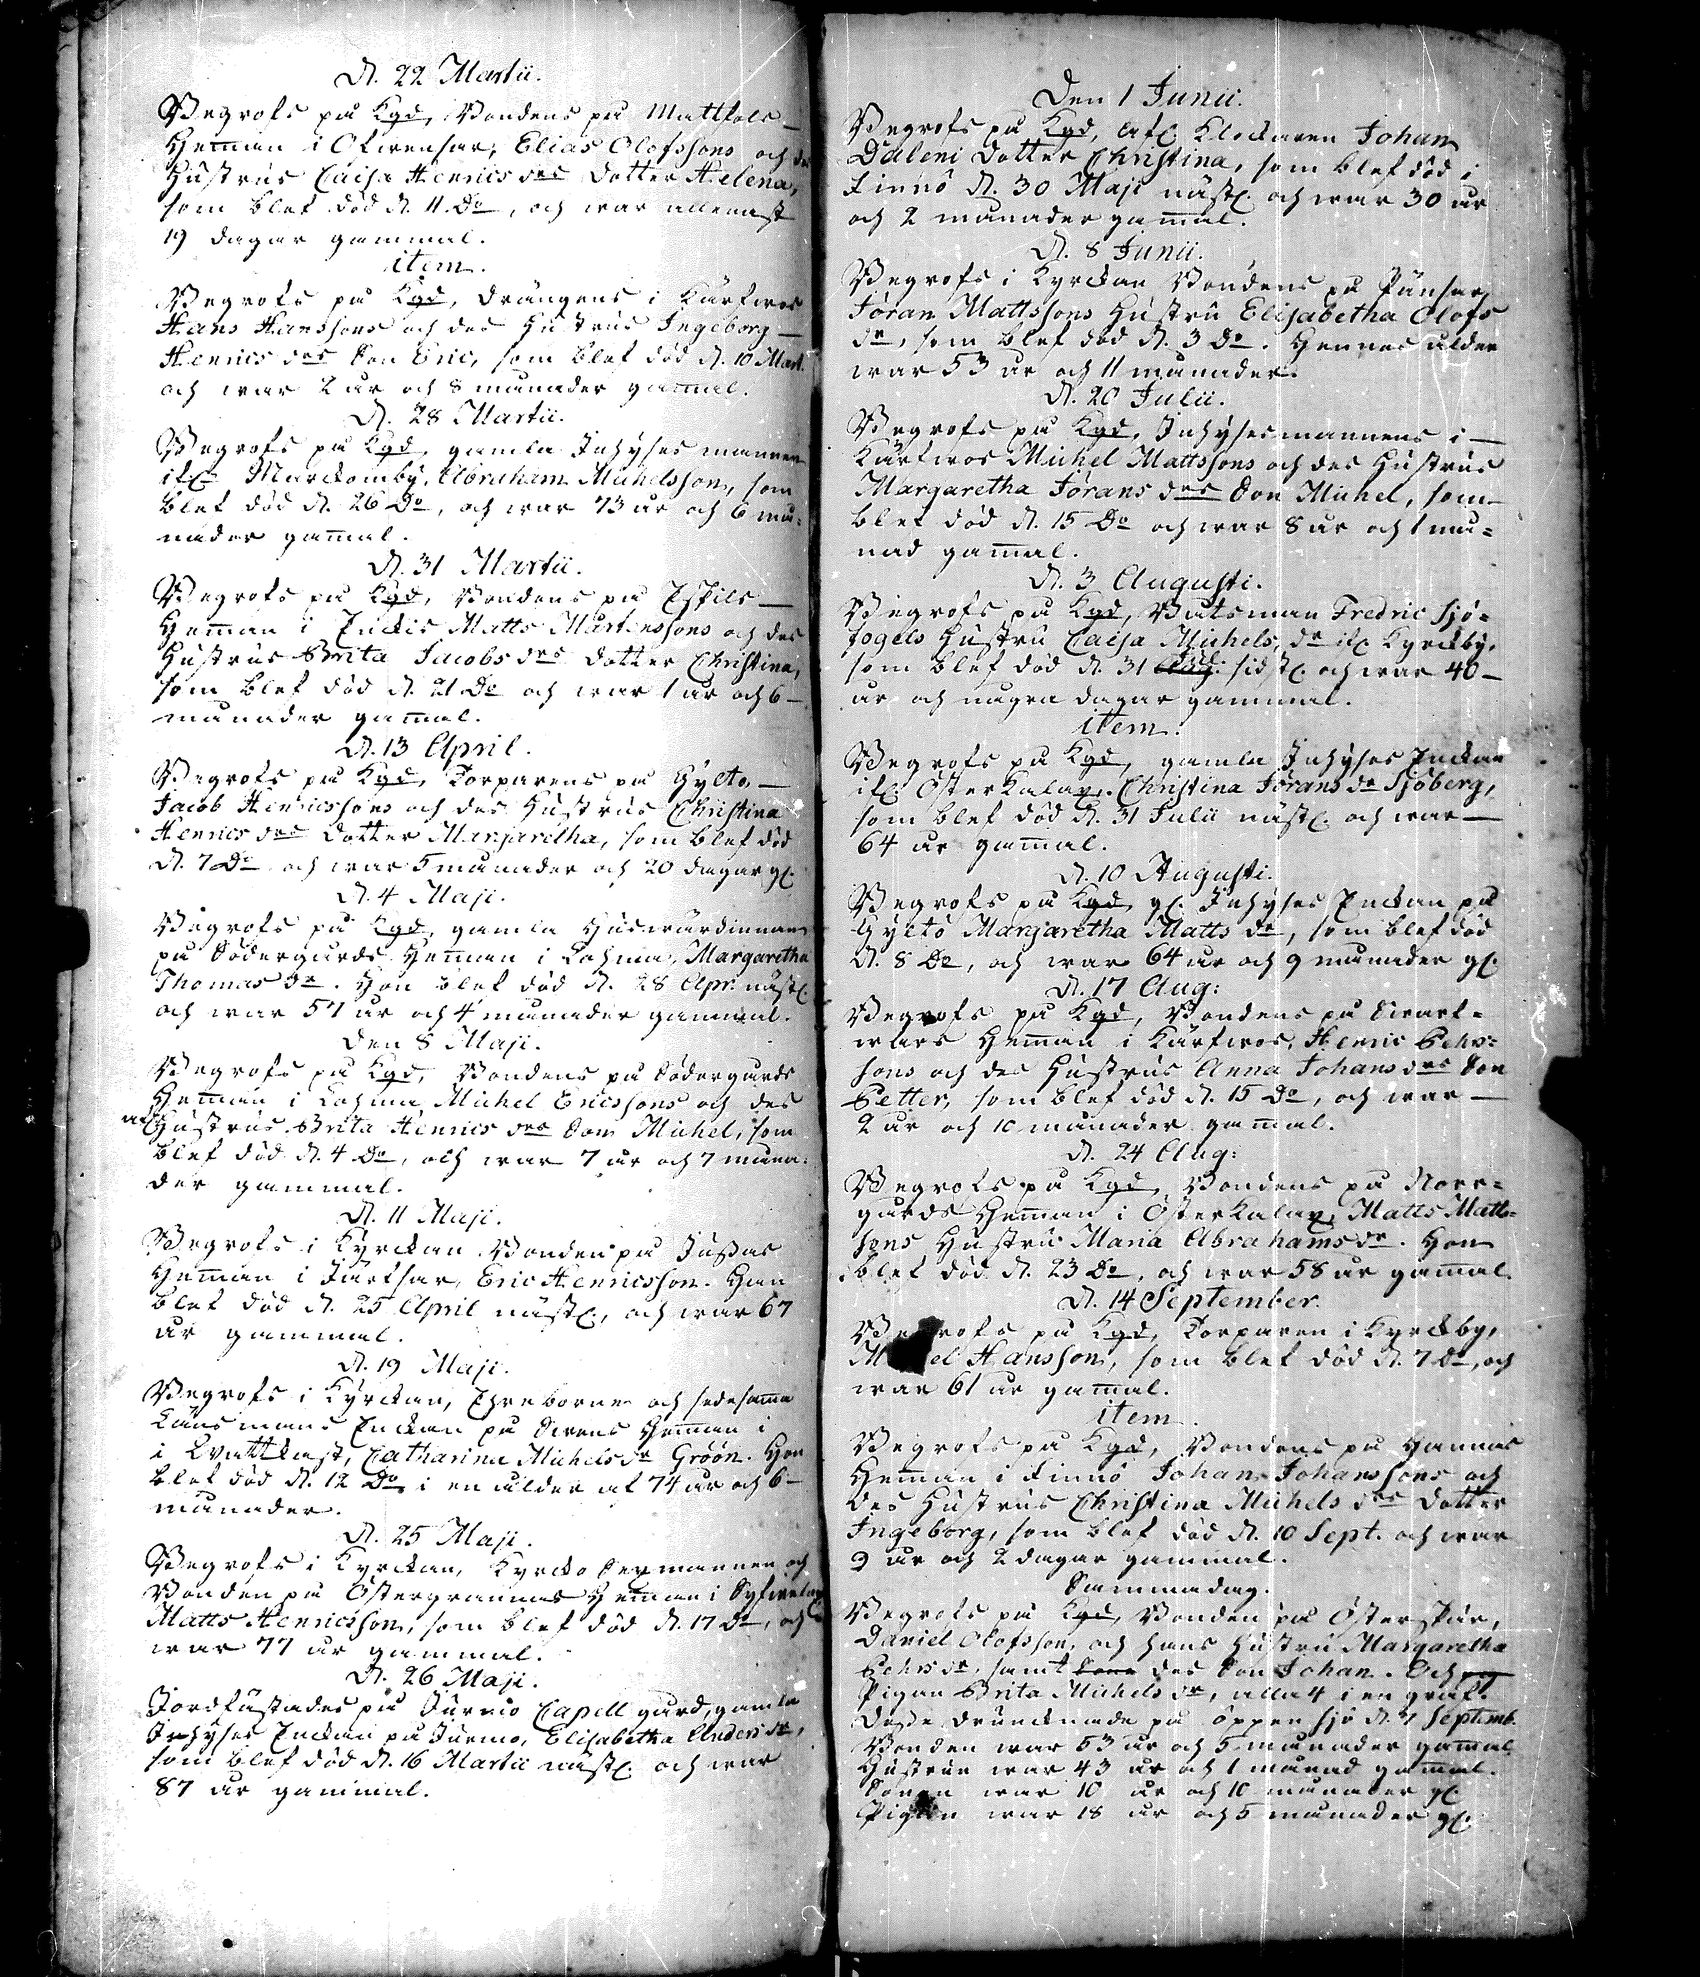 D. 22 Martii.
Begrofs på Kgd, Bondens på Mattfols
Hemman i Ofvensar, Elias Olofssons och des
Hustrus Caisa Henrics drs Dotter Helena,
som blef död d. 11 Do, och war allenast
19 dagar gammal.
item.
Begrofs på Kgd, Drängens i Kärfwos
Hans Hanssons och des Hustrus Ingeborg
Henrics drs Son Eric, som blef död d. 10 Mart.
och war 2 år och 8 månader gamal.
D. 28 Martii.
Begrofs på Kgd, gamla Inhyses mannen
ifrå Marckomby, Abraham Michelsson, som
blef död d. 26 Do, och war 73 år och 6 må-
nader gamal.
D. 31 Martii.
Begrofs på Kgd, Bondens på Espils
Heman i Enckis Matts Mårtenssons och des
Hustrus Brita Jacobs drs Dotter Christina,
som blef död d. 21 Do och war 1 år och 6
månader gamal.
D. 13 April.
Begrofs på Kgd, Torparens på Gylto,
Jacob Henricssons och des Hustrus Christina
Henrics drs Dotter Margaretha, som blef död
d. 7 Do och war 5 månader och 20 dagar gl.
D. 4 Maji.
Begrofs på Kgd, gamla Huswärdinnan
på Södergårds Heman i Lohma, Margaretha
Thomas dr. Hon blef död d. 28 Apr. nästl.
och war 57 år och 4 månader gammal.
Den 8 Maji.
Begrofs på Kgd, Bondens på Södergårds
Heman i Lohma Michel Ericssons och des
Hustrus Brita Henrics drs Son Michel, som
blef död d. 4 Do, och war 7 år och 7 måna-
der gammal.
D. 11 Maji.
Begrofs i Kyrckan Bonden på Jussas
Heman i Järfsar, Eric Henricsson. Han
blef död d. 25 April nästl., och war 67
år gammal.
D. 19 Maji.
Begrofs i Kyrckan, Ehreborne och sedesamma
Länsmans Enckan på Swens Heman i
i Kvattkast, Catharina Michels dr Gröön. Hon
blef död d. 12 Do i en ålder af 74 år och 6
månader.
D. 25 Maji.
Begrofs i Kyrckan, Kyrcko Sexmannen och
Bonden på Östergrannas Heman i Sylwelax
Matts Henricsson, som blef död d. 17 Do, och
war 77 år gammal.
D. 26 Maji.
Jordfästades på Jurmo Capell gård, gamla
Inhyses Enckan på Jurmo, Elisabetha Anders dr,
som blef död d. 16 Martii nästl. och war
87 år gammal.
Den 1 Junii.
Begrofs på Kgd, Afl. Klockaren Johan
Daleni Dotter Christina, som blef död i
Finnö d. 30 Maji nästl. och war 30 år
och 2 månader gamal.
D. 8 Junii.
Begrofs i Kyrckan Bondens på Pänsar
Jöran Mattssons Hustru Elisabetha Olofs
dr, som blef död d. 3 Do. Hennes ålder
war 53 år och 11 månader.
D. 20 Julii.
Begrofs på Kgd, Inhysesmannens i
Kärfwos Michel Mattssons och des Hustrus
Margaretha Jörans drs Son Michel, som
blef död d. 15 Do och war 8 år och 1 må-
nad gamal.
D. 3 Augusti.
Begrofs på Kgd, Båtsman Fredric Sjö-
fogels Hustru Caisa Michels dr ifrå Kyrckby,
som blef död d. 31 Aug: sidstl. och war 40
år och några dagar gammal.
item.
Begrofs på Kgd, gamla Inhyses Enckan
ifrå Österkalax, Christina Jörans dr Sjöberg,
som blef död d. 31 Julii nästl. och war
64 år gamal.
D. 10 Augusti.
Begrofs på Kgd, gl. Inhyses Enckan på
Gyltö Margaretha Matts dr, som blef död
d. 8 Do, och war 64 år och 9 månader gl.
D. 17 Aug:
Begrofs på Kgd, Bondens på Swart-
wars Heman i Kärfwos, Henric Pehrs-
sons och des Hustrus Anna Johans drs Son
Petter, som blef död d. 15 Do, och war
2 år och 10 månader gamal.
D. 24 Aug:
Begrofs på Kgd, Bondens på Norr-
gårds Heman i Österkalax, Matts Matts-
sons Hustru Maria Abrahams dr. Hon
blef död d. 23 Do, och war 58 år gamal.
D. 14 September.
Begrofs på Kgd, Torparen i Kyrckby,
M el Hansson, som blef död d. 7 Do, och
war 61 år gamal.
item.
Begrofs på Kgd, Bondens på Hannas
Heman i Finnö Johan Johanssons och
des Hustrus Christina Michels drs Dotter
Ingeborg, som blef död d. 10 Sept. och war
9 år och 2 dagar gammal.
Samma dag.
Begrofs på Kgd, Bonden på Österskär,
Daniel Olofsson, och hans Hustru Margaretha
Pehrs dr, samt des Son Johan. Och
Pigan Brita Michels dr, alla 4 i en graf.
Desse drunknade på öppen sjö d. 7 Septemb.
Bonden war 53 år och 5 månader gamal.
Hustrun war 43 år och 1 månad gamal.
Sonen war 10 år och 10 månader gl.
Pigan war 18 år och 5 månader gl.